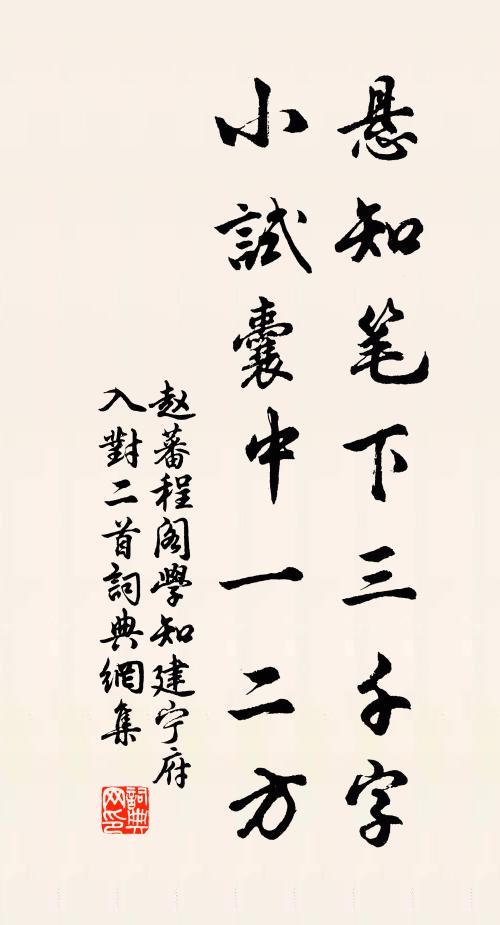 悬知笔下三千字
小試囊中一二方
赵蕃程阁學知建宁府
入對二首詞典網集
詞典
网印